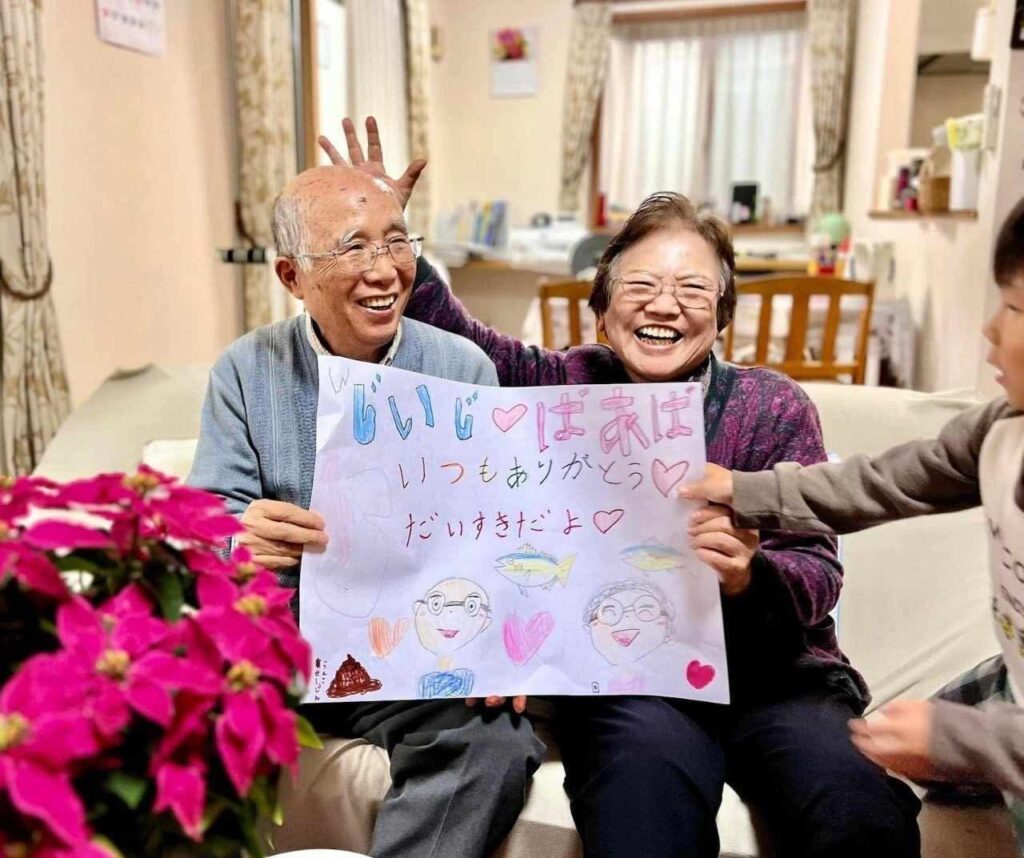 じいじ♡ばあば
いつもありがとう♡
だいすきだよ♡
うんこ